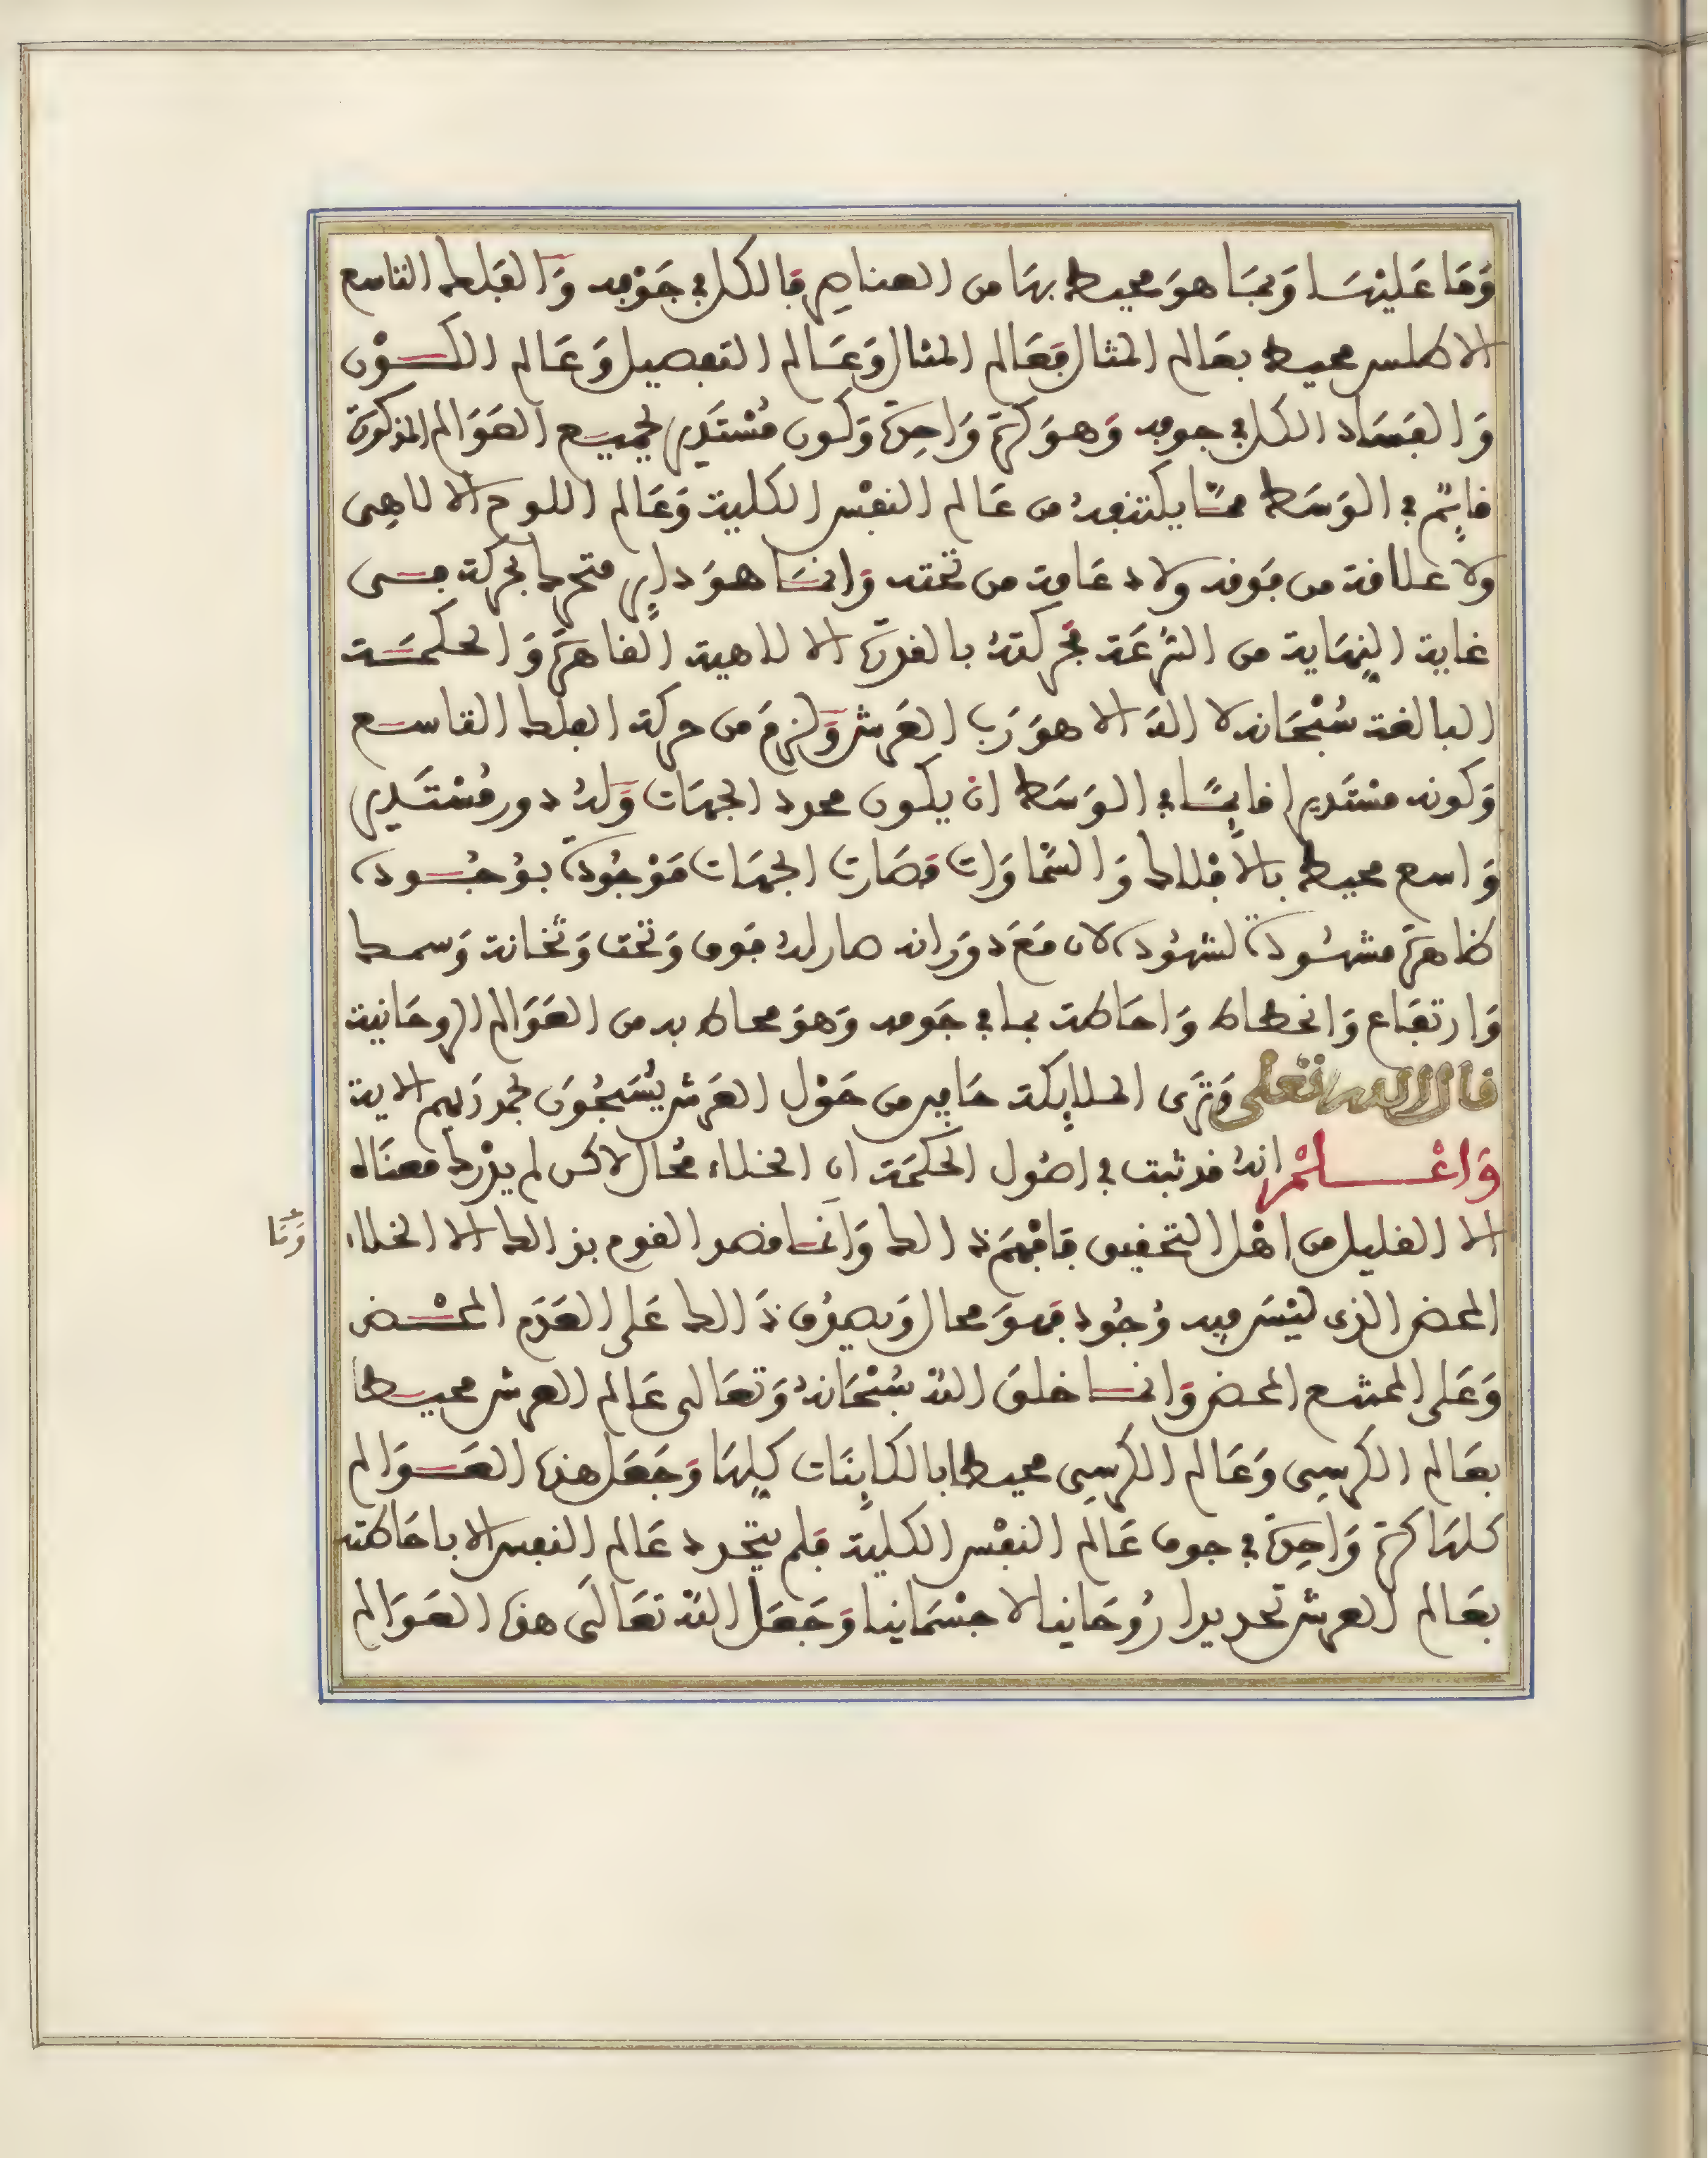 وَمَا عَليْهَا وَبمَا هوَ محيط بهَا من العناصِر فَالكل في جَوْفِه وَالفَلك التاسع
الاطلس محيط بعَالم المثال فعَالم المثال وَعَالم التفصيل وَعَالم الكَوْن
وَالفَسَاد الكل في جوفه وَهوَ كرَة وَاحِدَة وَكون مُسْتَدير لجميع العَوَالم المذكورَة
قايِمٌ في الوَسَط ممَّا يكتنفهُ من عَالم النفْس الكلية وَعَالم اللوح الالاهِى
ولا علاقة من فوقه ولا دعَامة من تحته وَانمَا هوَ داير متحرك بحركة فى
غاية النِهَاية من السُّرعَة فحَركتهُ بالقدرَة الالاهية القاهرَة وَالحكمَة
البالغة سُبْحَانه لا الهَ الا هوَ رَب العَرش وَلزمَ من حركة الفلك التاسع
وَكونه مسْتَديرا قايمًا في الوَسَط ان يكون محدد الجهَات وَلهُ دور مُسْتَدير
وَاسع محيط بالاَفْلاك وَالسَّماوَات فصَارت الجهَات مَوْجُودَة بوُجُوده
ظاهرَة مشهُودة لشهُوده لان مَعَ دوَرانه صار لهُ فوق وَتحت وَثخانة وَسمك
وَارتفَاع وَانحطاط وَاحَاطة بما في جَوفه وَهوَ محاط به من العَوَالم الروحَانية
قال الله تعلى وَترَى الملايِكة حَافين من حَوْل العَرش يُسَبحُونَ بحمد رَبهم الاية
وَاعْلمْ انهُ قد ثبت في اصُول الحكمَة ان الخلاء مُحَال لاكن لم يدْرك معنَاه
الا القليل من اهْل التحقيق فَافْهَم ذالك وَانمَا قصد القوم بذالك الا الخلاء
وَنَا
المحض الذى ليْسَ فيه وُجُود فهوَ محال وَيصدُق ذَالك عَلى العَدَم المحْض
وَعَلى الممتنع المحض وَانما خلقَ اللهُ سُبْحَانهُ وَتعَالى عَالم العرش محيطا
بعَالم الكرسِى وَعَالم الكرسِى محيطا بالكايِنَات كلِهَا وَجَعَل هذه العَوَالم
كلهَا كرَة وَاحِدَة في جوف عَالم النفْس الكلية فلم يتحدد عَالم النفس الا باحَاطته
بعَالم العرش تحديدا رُوحَانيا لا جسْمَانيا وَجَعَل اللهُ تعَالَى هذه العَوَالم